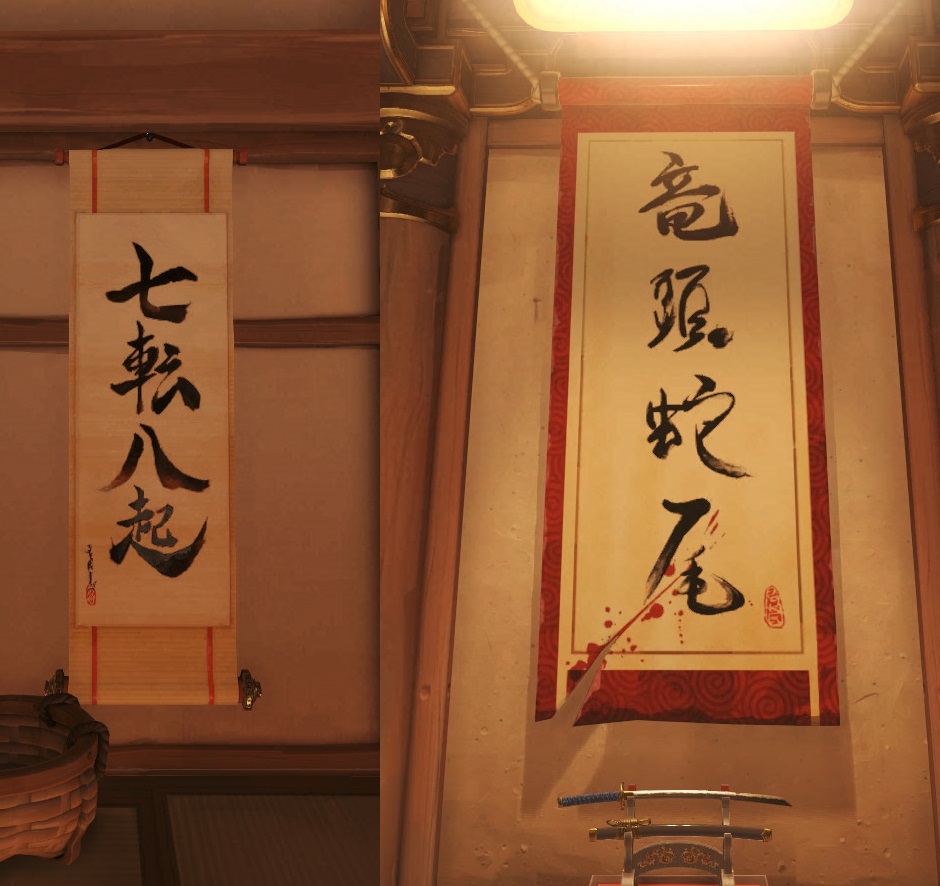 七転八起
竜頭蛇尾